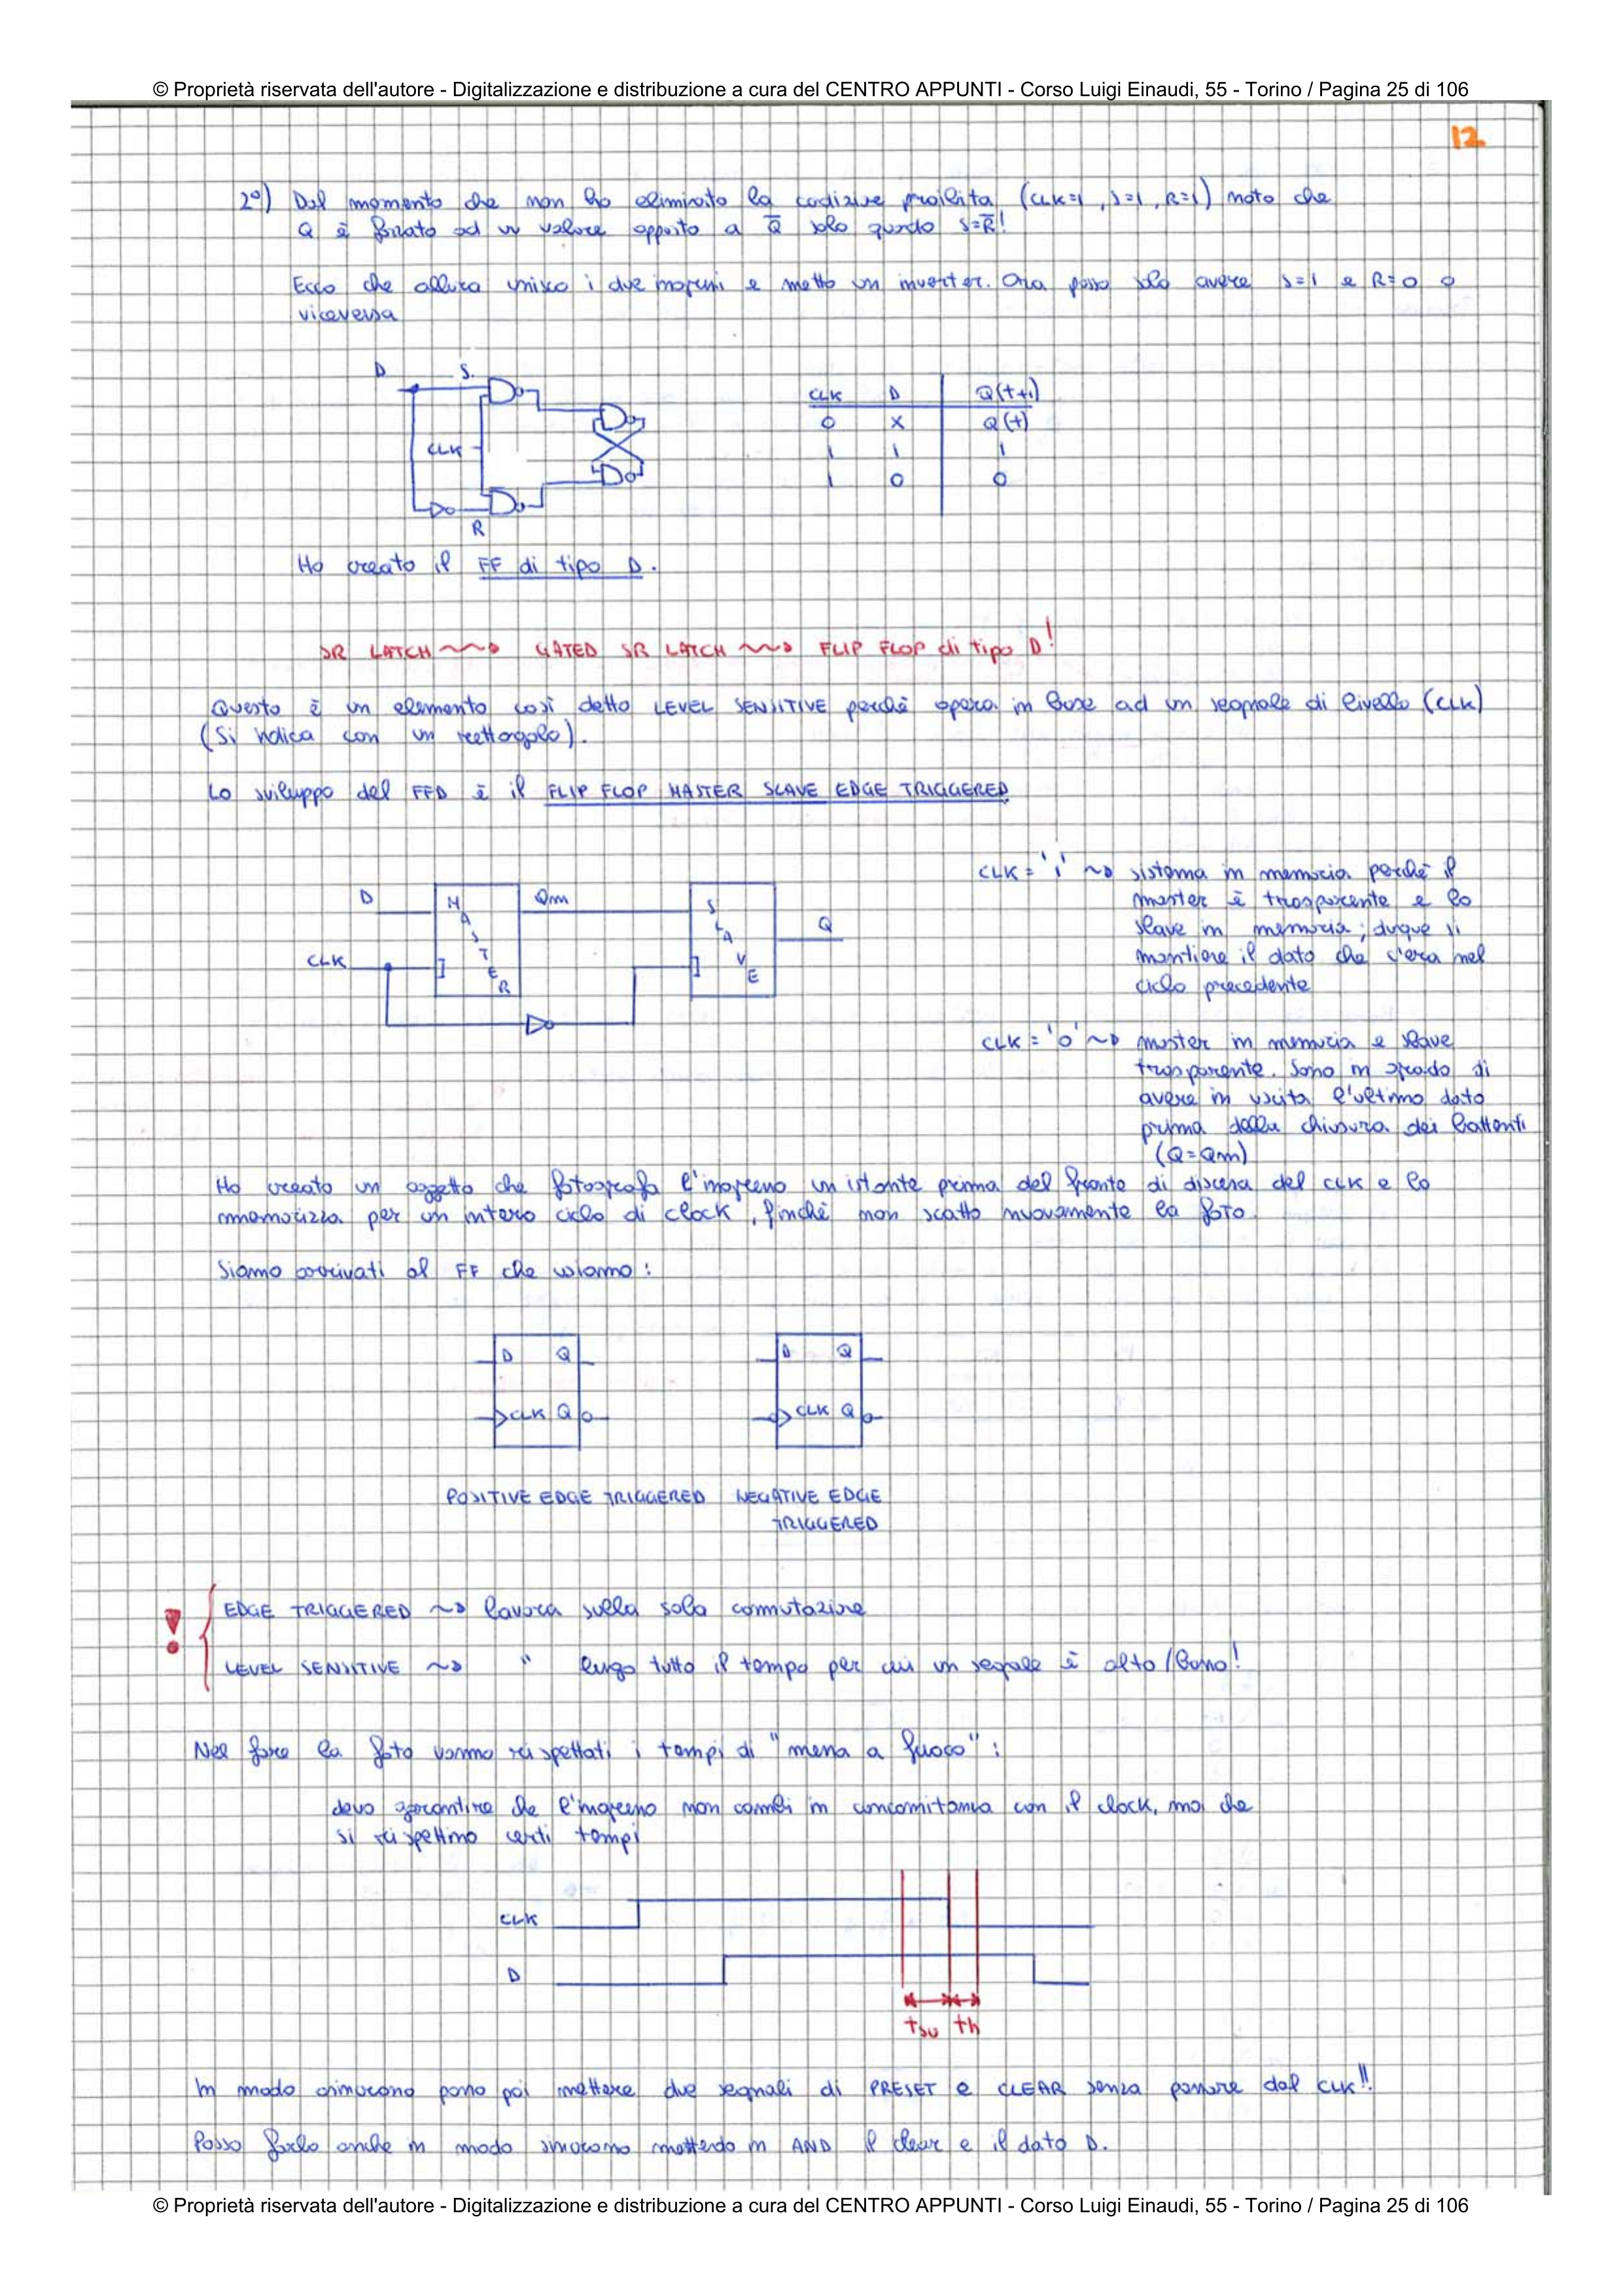 © Proprietà riservata dell'autore - Digitalizzazione e distribuzione a cura del CENTRO APPUNTI - Corso Luigi Einaudi, 55 - Torino / Pagina 25 di 106
12
2°) Dal momento che non ho eliminato la codizione proibita (CLK=1, S=1, R=1) noto che
Q è forzato ad un valore opposto a Q̅ solo quando S=R̅!
Ecco che allora unisco i due ingressi e metto un inverter. Ora posso solo avere S=1 e R=0 o
viceversa
D S.
CLK
R
CLK D Q(t+1)
0 X Q(t)
1 1 1
1 0 0
Ho creato il FF di tipo D.
SR LATCH ~~> GATED SR LATCH ~~> FLIP FLOP di tipo D!
Questo è un elemento così detto LEVEL SENSITIVE perchè opera in base ad un segnale di livello (CLK)
(Si indica con un rettangolo).
Lo sviluppo del FFD è il FLIP FLOP MASTER SLAVE EDGE TRIGGERED
D MASTER Qm SLAVE Q
CLK
CLK = '1' ~> sistema in memoria perchè il
master è trasparente e lo
slave in memoria; duque si
mantiene il dato che c'era nel
ciclo precedente
CLK = '0' ~> master in memoria e slave
trasparente. Sono in grado di
avere in uscita l'ultimo dato
prima della chiusura dei battenti
(Q=Qm)
Ho creato un oggetto che fotografa l'ingresso un istante prima del fronte di discesa del CLK e lo
memorizza per un intero ciclo di clock, finchè non scatto nuovamente la foto.
Siamo arrivati al FF che usiamo:
D Q
CLK Q
D Q
CLK Q
POSITIVE EDGE TRIGGERED NEGATIVE EDGE
TRIGGERED
! EDGE TRIGGERED ~> lavora sulla sola commutazione
LEVEL SENSITIVE ~> " lungo tutto il tempo per cui un segnale è alto/basso!
Nel fare la foto vanno rispettati i tempi di "messa a fuoco":
devo garantire che l'ingresso non cambi in concomitanza con il clock, ma che
si rispettino certi tempi
CLK
D
tsu th
In modo asincrono posso poi mettere due segnali di PRESET e CLEAR senza passare dal CLK!!
Posso farlo anche in modo sincrono mettendo in AND il clear e il dato D.
© Proprietà riservata dell'autore - Digitalizzazione e distribuzione a cura del CENTRO APPUNTI - Corso Luigi Einaudi, 55 - Torino / Pagina 25 di 106